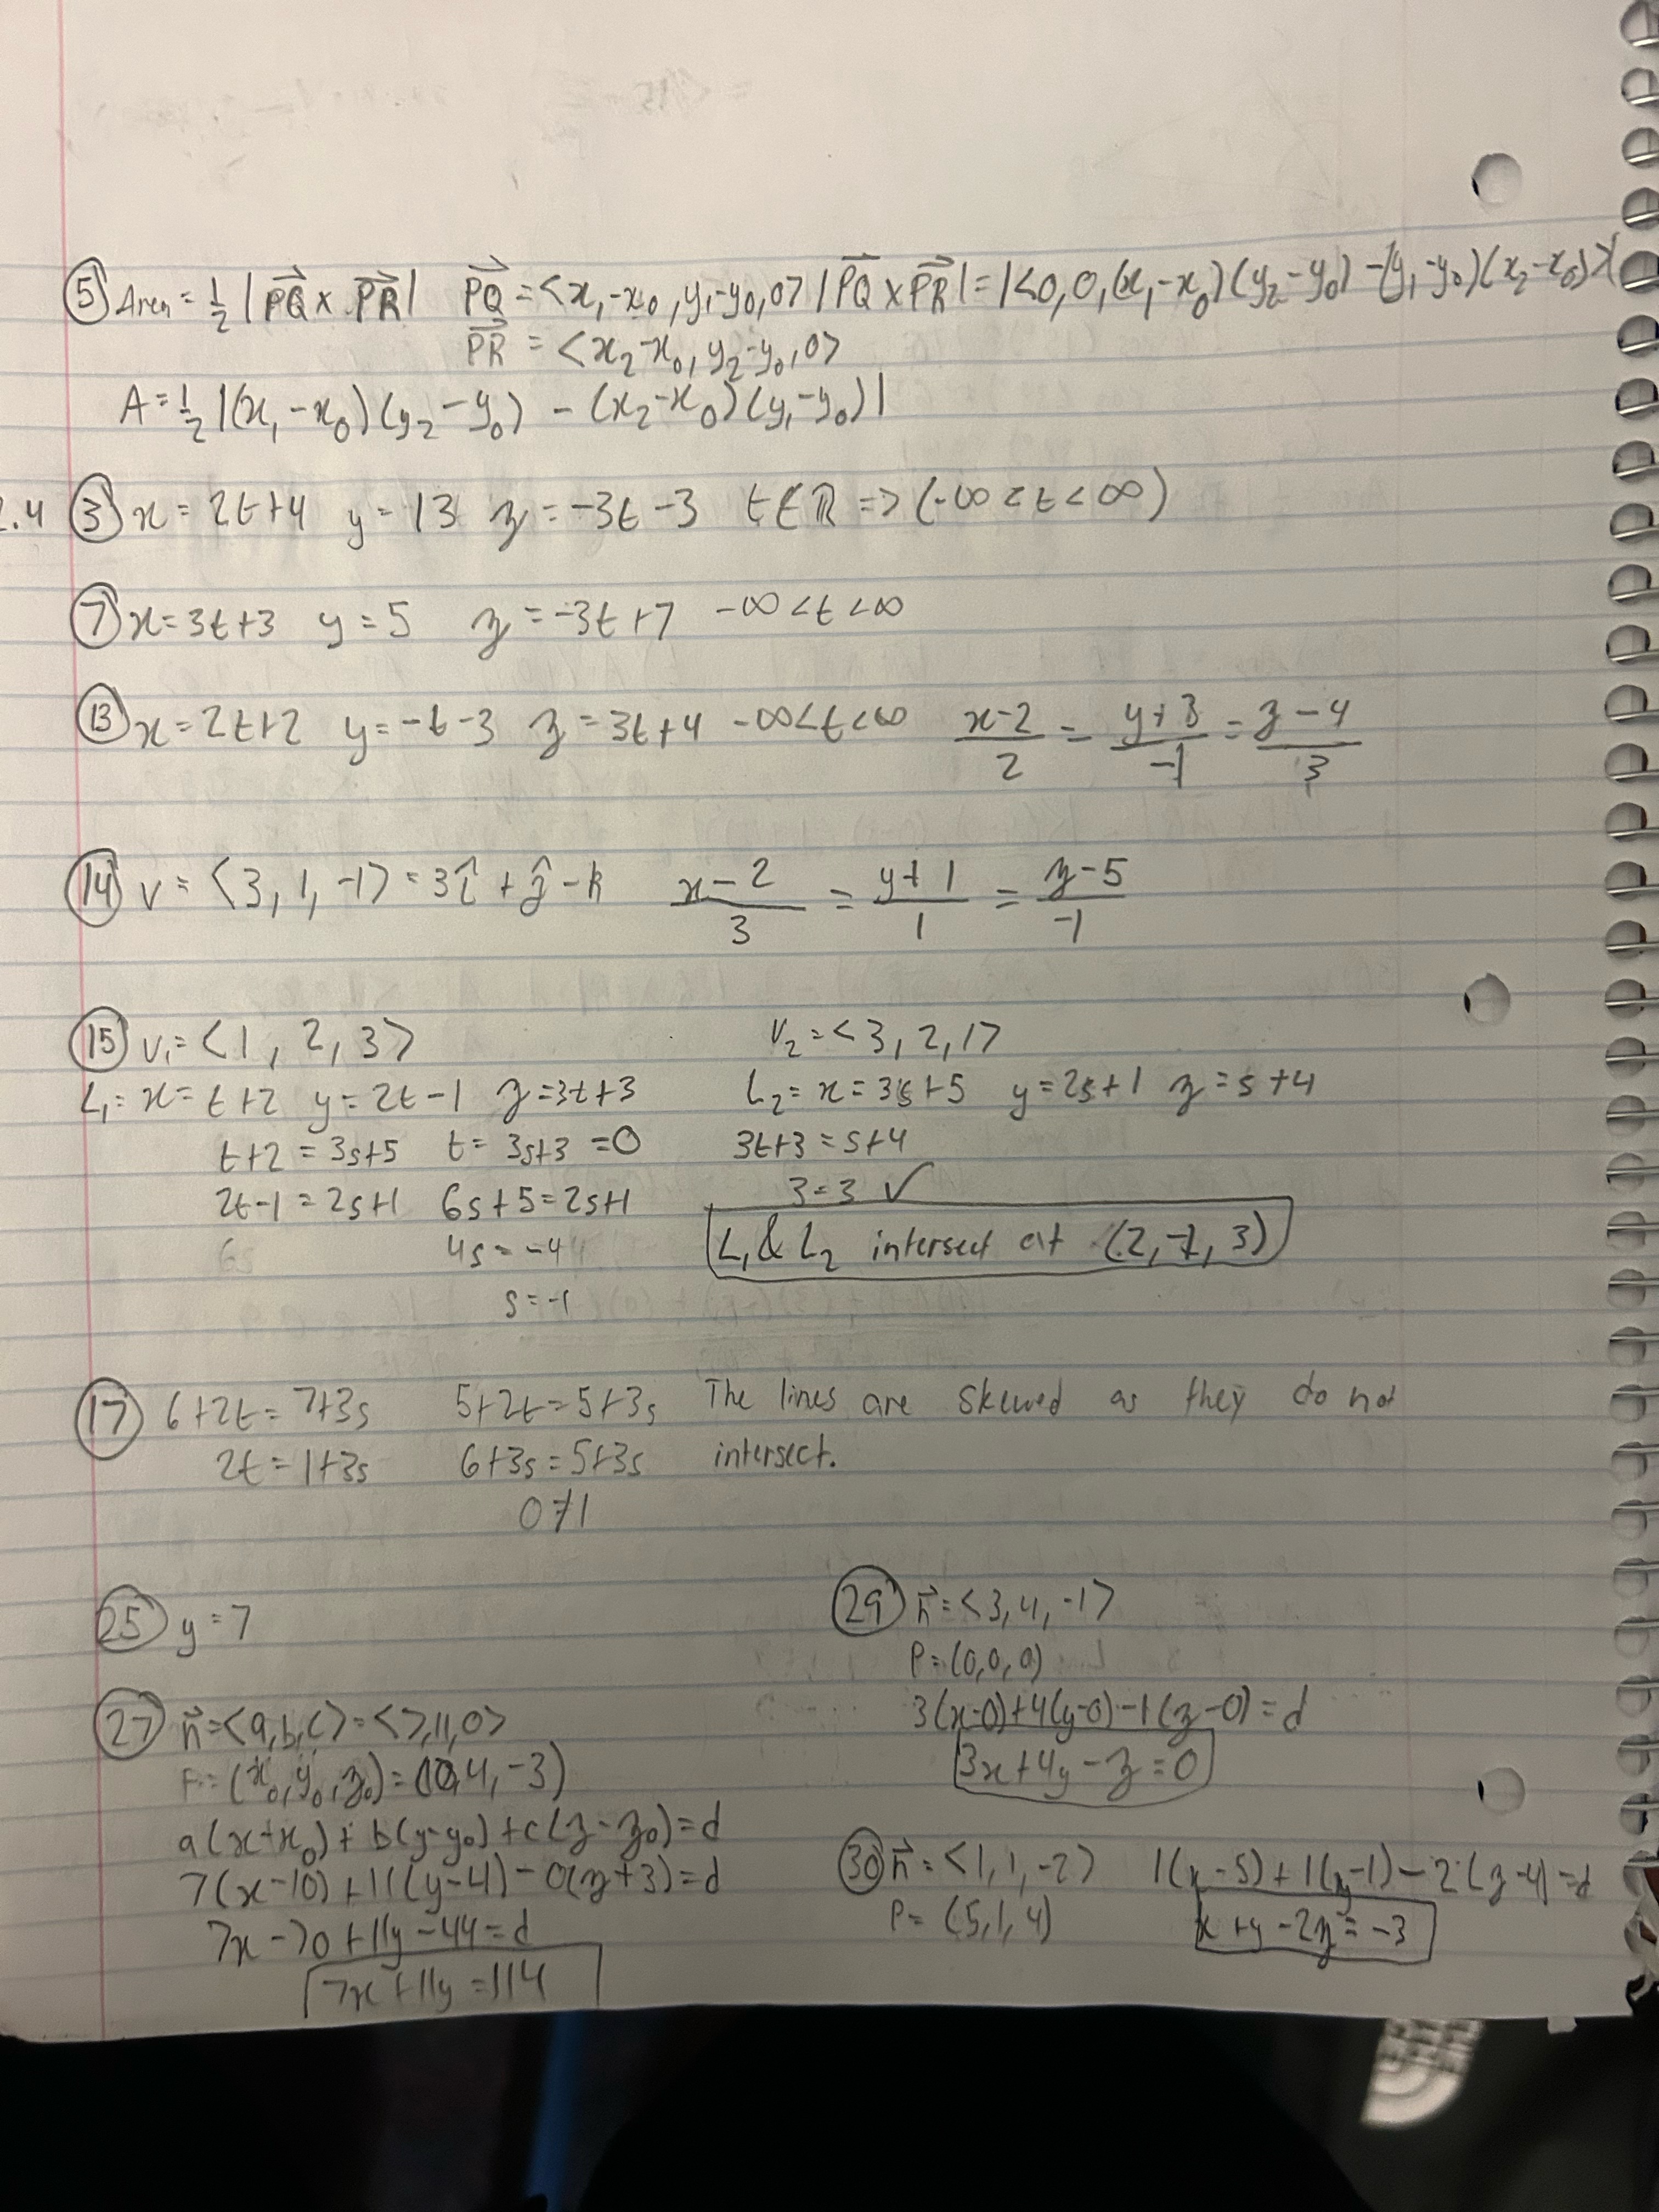 ⑤ Area = 1/2 |PQ⃗ × PR⃗| PQ⃗ = <x₁-x₀, y₁-y₀, 0> |PQ⃗ × PR⃗| = |<0, 0, (x₁-x₀)(y₂-y₀) - (y₁-y₀)(x₂-x₀)>|
PR⃗ = <x₂-x₀, y₂-y₀, 0>
A = 1/2 |(x₁-x₀)(y₂-y₀) - (x₂-x₀)(y₁-y₀)|
2.4 ③ x = 2t+4 y = 13 z = -3t-3 t∈ℝ => (-∞ < t < ∞)
⑦ x = 3t+3 y = 5 z = -3t+7 -∞ < t < ∞
⑬ x = 2t+2 y = -t-3 z = 3t+4 -∞ < t < ∞ (x-2)/2 = (y+3)/-1 = (z-4)/3
⑭ v = <3, 1, -1> = 3î + ĵ - k (x-2)/3 = (y+1)/1 = (z-5)/-1
⑮ v₁ = <1, 2, 3> v₂ = <3, 2, 1>
L₁ = x = t+2 y = 2t-1 z = 3t+3 L₂ = x = 3s+5 y = 2s+1 z = s+4
t+2 = 3s+5 t = 3s+3 = 0 3t+3 = s+4
2t-1 = 2s+1 6s+5 = 2s+1 3 = 3 ✓
4s = -4 L₁ & L₂ intersect at (2, -1, 3)
s = -1
⑰ 6+2t = 7+3s 5+2t = 5+3s The lines are skewed as they do not
2t = 1+3s 6+3s = 5+3s intersect.
0 ≠ 1
㉕ y = 7
㉙ n⃗ = <3, 4, -1>
P = (0, 0, 0)
3(x-0)+4(y-0)-1(z-0) = d
3x+4y-z = 0
㉗ n⃗ = <a, b, c> = <7, 11, 0>
P = (x₀, y₀, z₀) = (10, 4, -3)
a(x-x₀) + b(y-y₀) + c(z-z₀) = d
7(x-10) + 11(y-4) - 0(z+3) = d
7x-70+11y-44 = d
7x+11y = 114
㉚ n⃗ = <1, 1, -2> 1(x-5)+1(y-1)-2(z-4) = d
P = (5, 1, 4) x+y-2z = -3